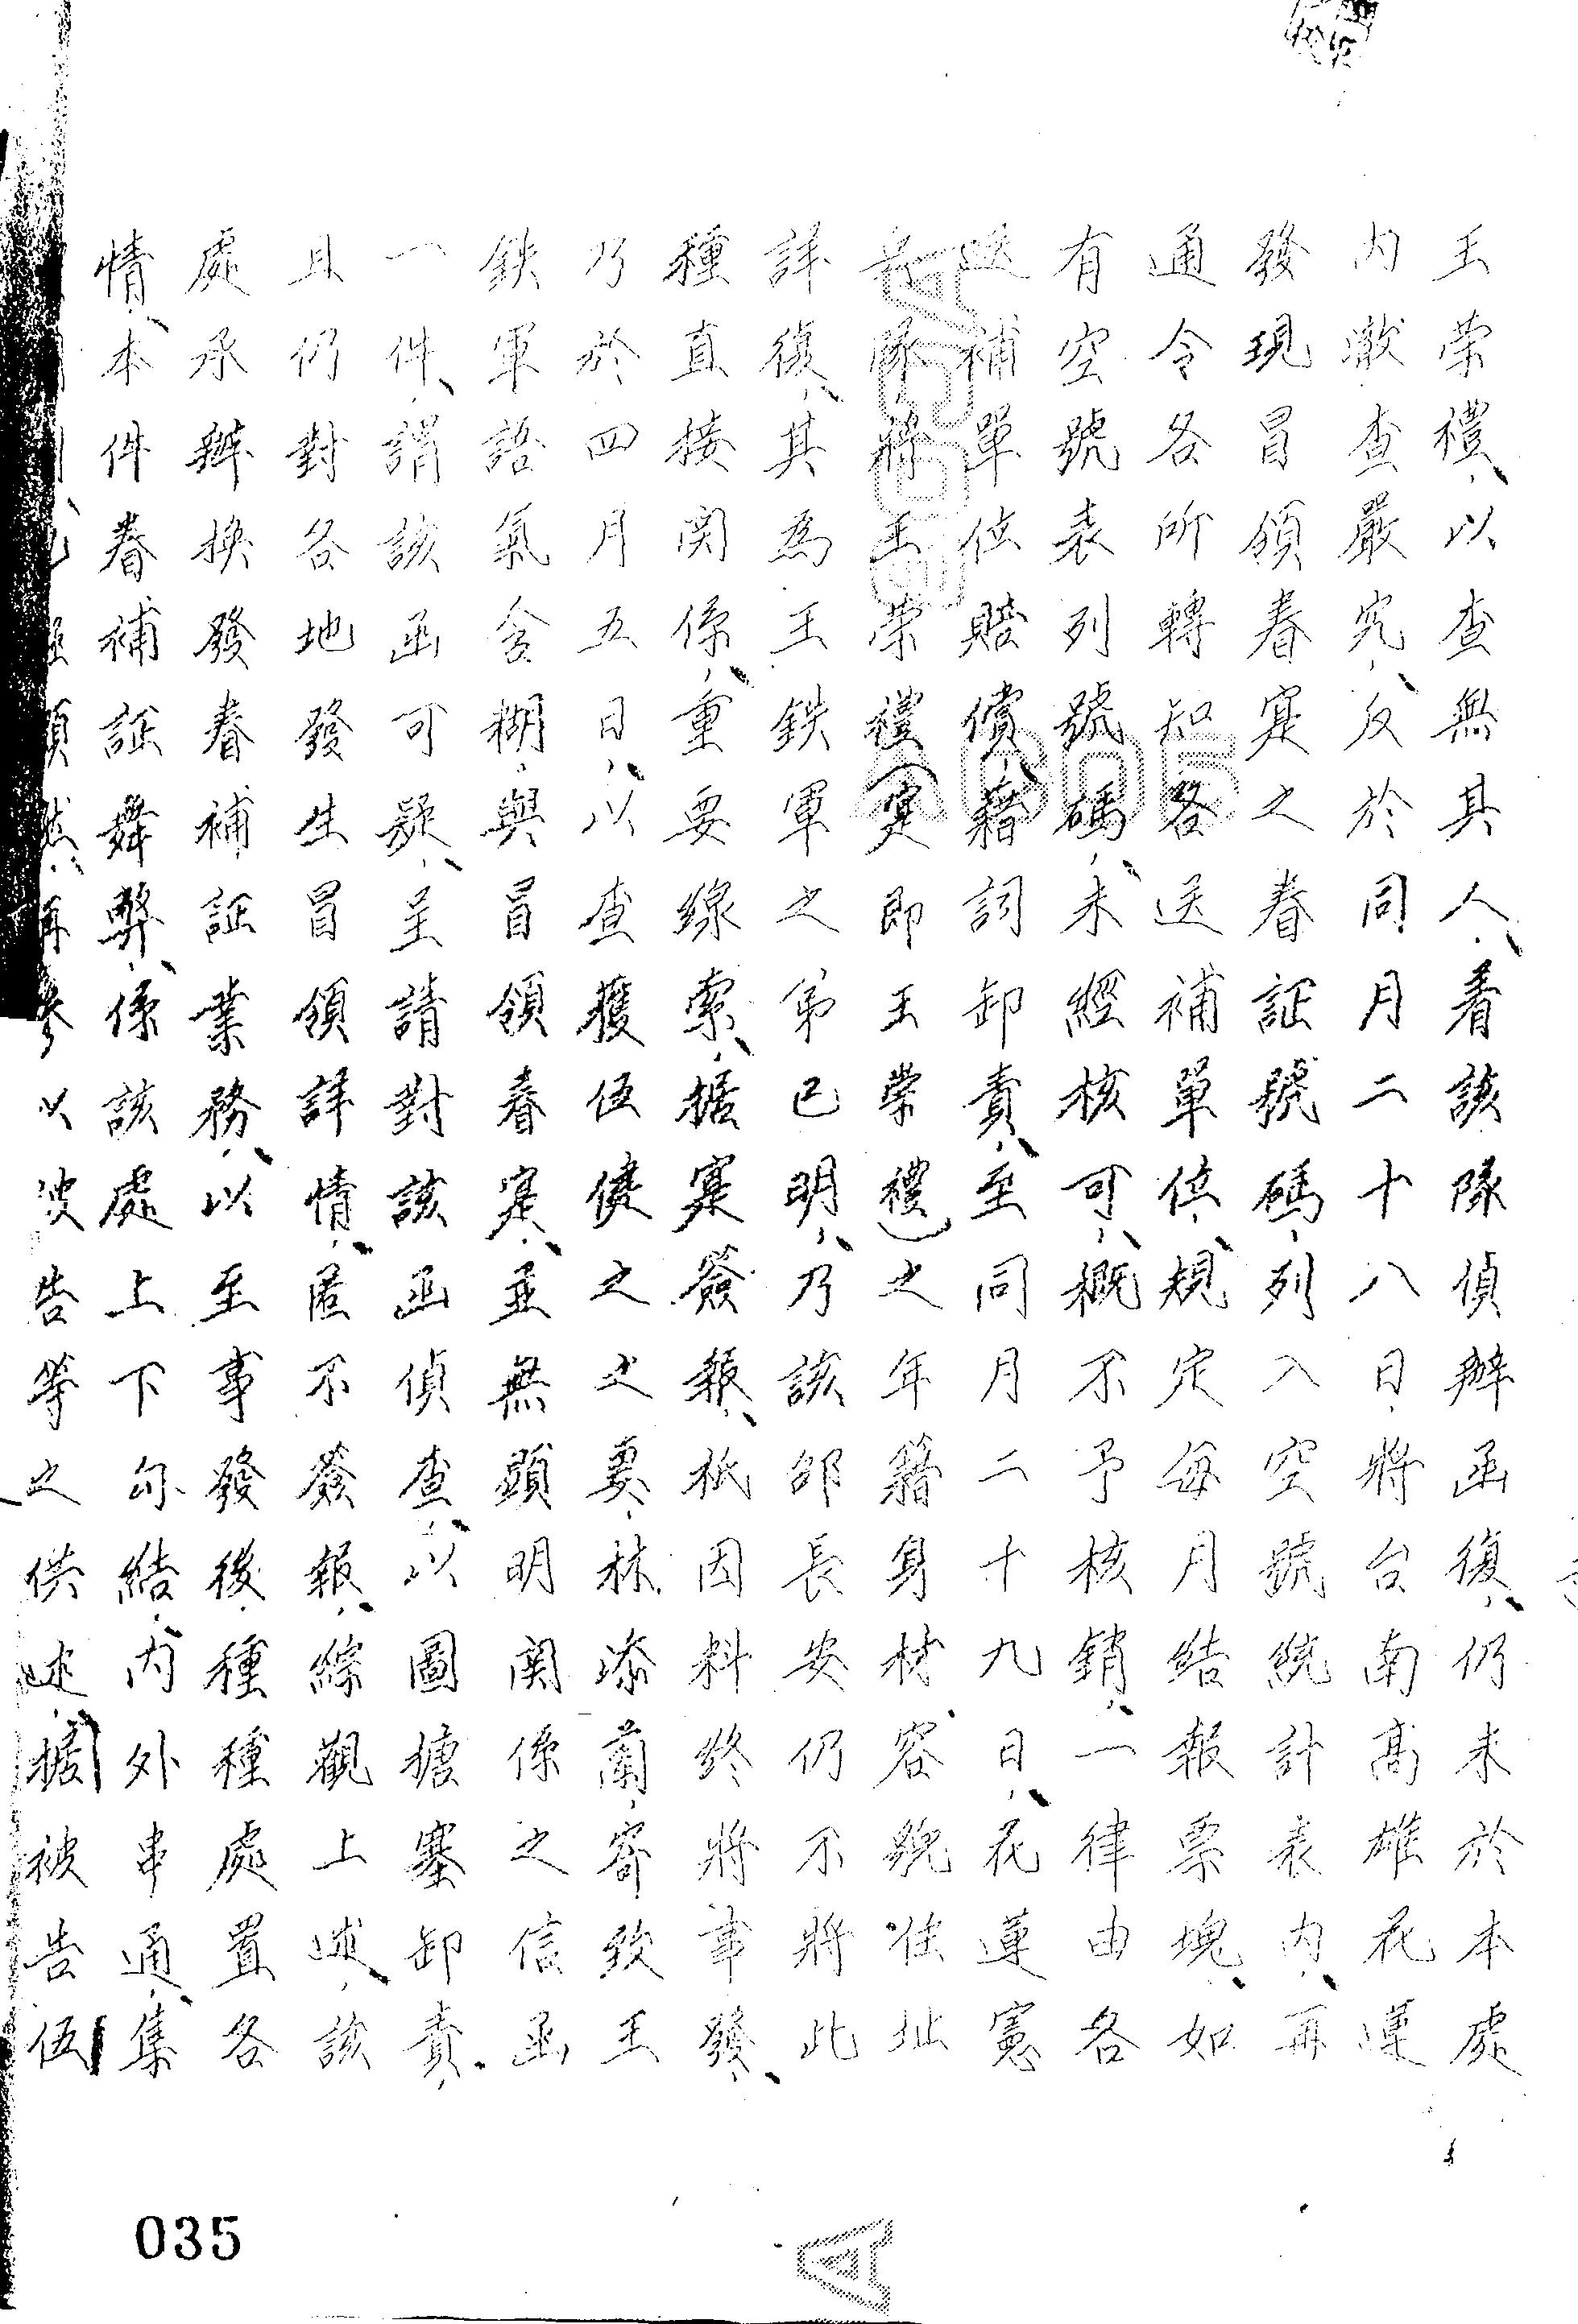 王荣禮、以查無其人、着該隊偵辦函復、仍未於本處
內澈查嚴究、反於同月二十八日、將台南高雄花蓮
發現冒領眷寔之眷証號碼、列入空號統計表內、再
通令各所轉知各送補單位、規定每月結報票塊、如
有空號表列號碼、未經核可、概不予核銷、一律由各
送補單位賠償、藉詞卸責、至同月二十九日、花蓮憲
兵隊將王荣禮(寔即王荣禮)之年籍身材、容貌住址
詳復、其為王鉄軍之弟已明、乃該部長安仍不將此
種直接関係、重要線索、据寔簽報、祇因料終將事發、
乃於四月五日、以查獲伍健之之妻、林添蘭、寄致王
鉄軍語氣含糊、與冒領眷寔、並無顕明関係之信函
一件、謂該函可疑、呈請對該函偵查、以圖搪塞卸責、
且仍對各地發生冒領詳情、匿不簽報、綜觀上述、該
處承辦換發眷補証業務、以至事發後、種種處置各
情、本件眷補証舞弊、係該處上下勾結、內外串通、集
參以波告等之供述、据被告伍
035